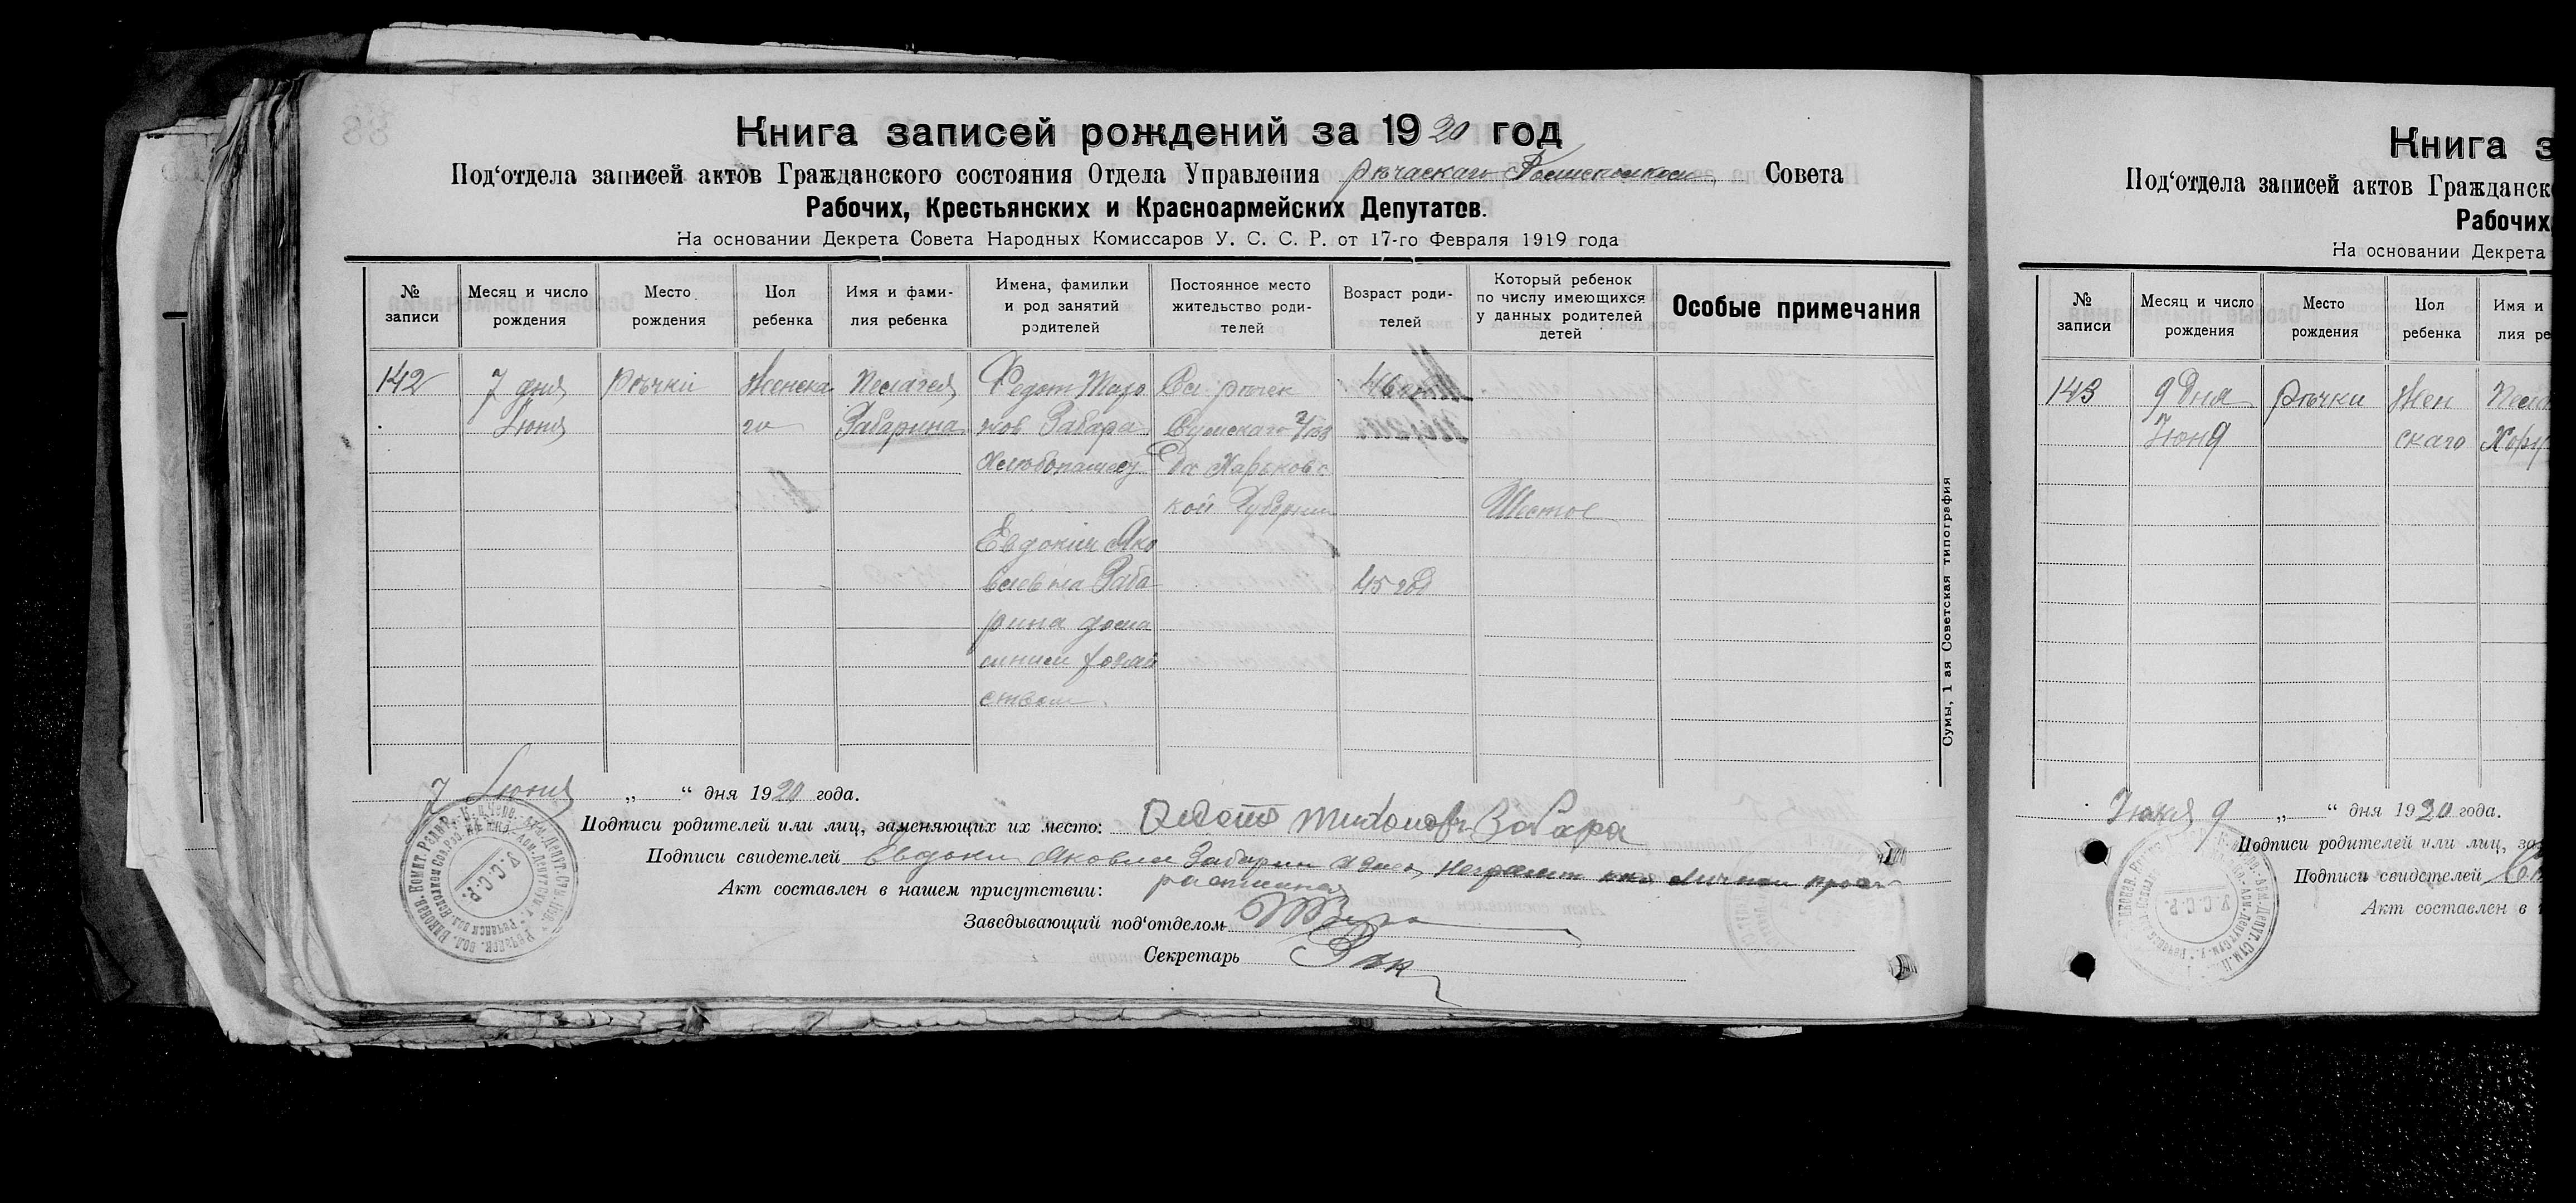 Книга записей рождений за 1920 год
Под‘отдела записей актов Гражданского состояния Отдела Управления Речаскаго Совета
Рабочих, Крестьянских и Красноармейских Депутатов.
На основании Декрета Совета Народных Комиссаров У. С. С. Р. от 17-го Февраля 1919 года
№ записи
Месяц и число рождения
Место рождения
Пол ребенка
Имя и фами-лия ребенка
Имена, фамилии и род занятий родителей
Постоянное место жительство роди-телей
Возраст роди-телей
Который ребенок по числу имеющихся у данных родителей детей
Особые примечания
142
7 дня
Июня
Рѣчки
Женска
го
Пелагея
Забарина
Федот
нов Забара
Хлѣбопашец
Евдокия Яко
влевна Заба
рина дома
шним хозяй
ством.
Сел. Речек
Сумскаго Уѣз
да Харьковс
кой Губернии
46
45 год
Шестое
Сумы, 1 ая Советская типография
7 Июня „ “ дня 1920 года.
Подписи родителей или лиц, заменяющих их место: Федот Тихонов Забара
Подписи свидетелей Евдоки Яковл Забарин
Акт составлен в нашем присутствии:
Заведывающий под‘отделом
Секретарь
У.С.С.Р.
Книга з
Под‘отдела записей актов Гражданск
Рабочих,
На основании Декрета
№ записи
Месяц и число рождения
Место рождения
Пол ребенка
Имя и
лия ре
143
9 Дня
Июня
Рѣчки
Жен
скаго
Пела
Июня 9 „ “ дня 1920 года.
Подписи родителей или лиц, за
Подписи свидетелей
Акт составлен в
У.С.С.Р.